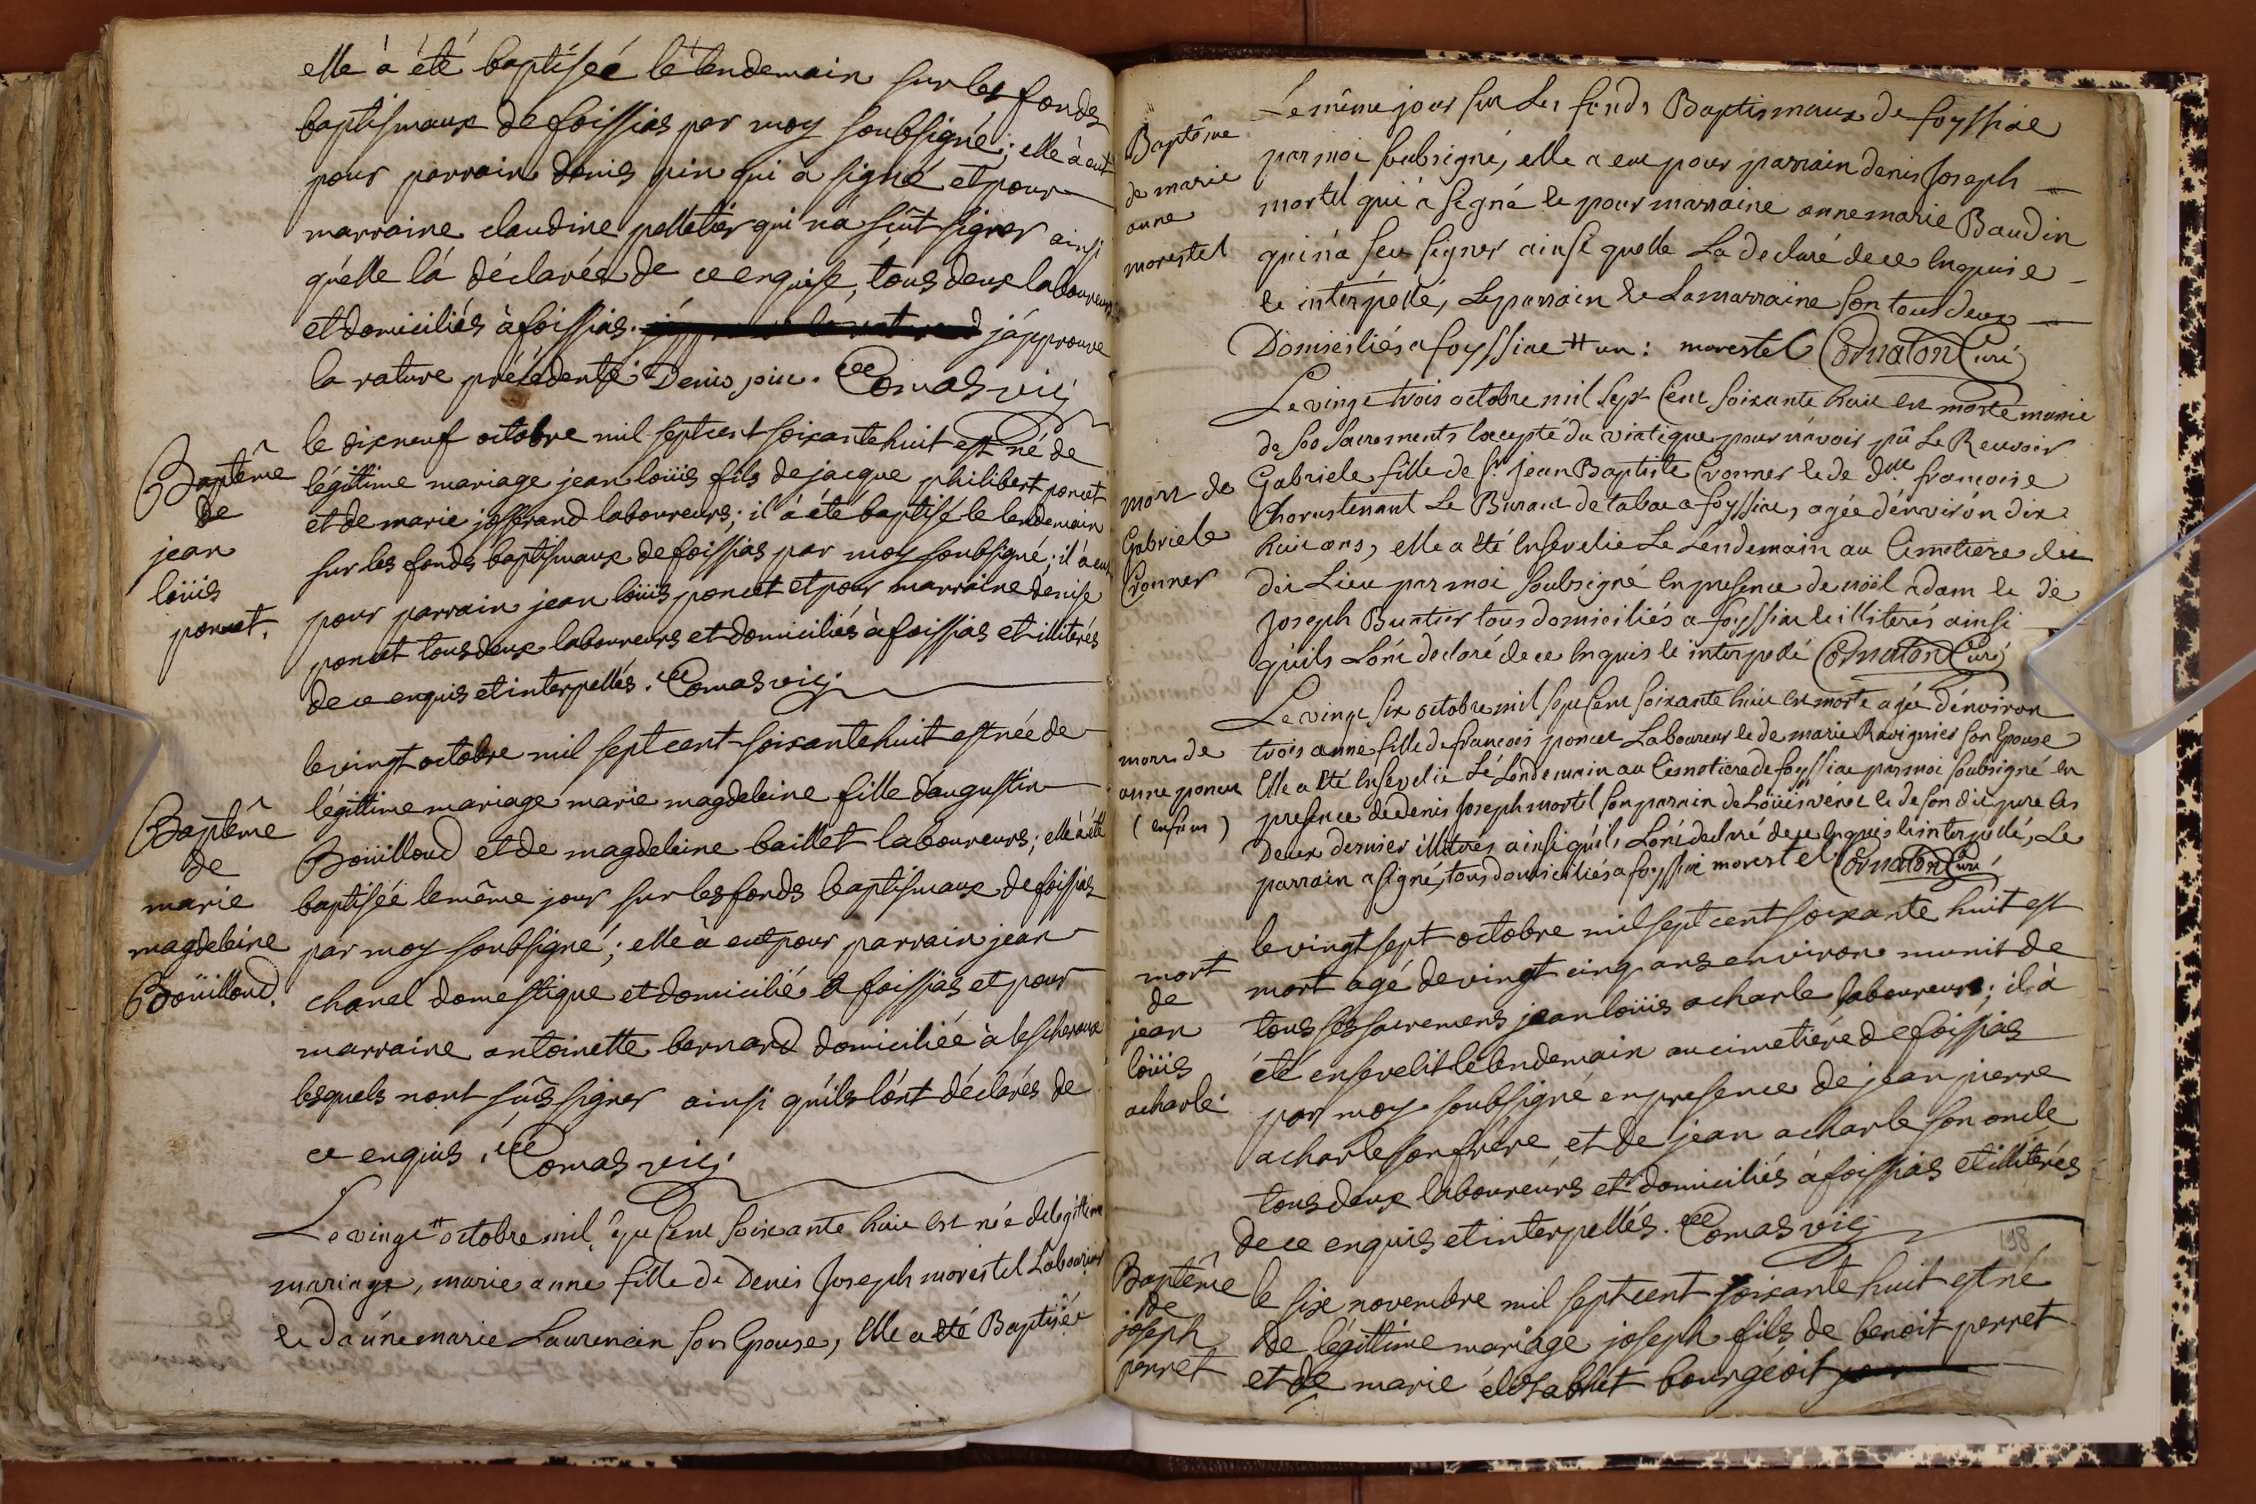 elle à été baptisée le lendemain sur les fonds
baptismaux de foissias par moy soubsigné; elle à eut
pour parrain denis pin qui à signé et pour
marraine claudine pelletier qui n'a sçût signer ainsi
qu'elle l'a déclarée de ce enquise, tous deux laboureurs
et domiciliés à foissias. j'approuve
la rature précédente Denis pin. Comas vic
Baptême
de
jean
loüis
poncet.
le dixneuf octobre mil sept cent soixante huit est né de
légittime mariage jean loüis fils de jacque philibert poncet
et de marie josserand laboureurs; il à été baptisé le lendemain
sur les fonds baptismaux de foissias par moy soubsigné; il à eut
pour parrain jean loüis poncet et pour marraine denise
poncet tous deux laboureurs et domiciliés à foissias et illitérés
de ce enquis et interpellés. Comas vic
Baptême
de
marie
magdeleine
Boüilloud.
le vingt octobre mil sept cent soixante huit est née de
légittime mariage marie magdeleine fille d'augustin
Boüilloud et de magdeleine baillet laboureurs; elle à été
baptisée le même jour sur les fonds baptismaux de foissias
par moy soubsigné; elle à eut pour parrain jean
chanel domestique et domicilié à foissias et pour
marraine antoinette bernard domiciliée à lescheroux
lesquels n'ont sçûs signer ainsi qu'ils l'ont déclarés de
ce enquis. Comas vic
Le vingt octobre mil sept Cent soixante huit est née de legitime
mariage, marie anne fille de Denis Joseph morestel Laboureur
et d'anne marie Laurencin son Epouse, Elle a été Baptisée
Baptême
de marie
anne
morestel
Le même jour sur Les fonds Baptismaux de foyssiae
par moi soubsigné, elle a eut pour parrain denis Joseph
mortel qui a signé et pour marraine anne marie Baudin
qui n'a seu signer ainsi quelle La declaré de ce Enquise
et interpellé, Le parrain et La marraine son tous deux
Domiciliés a foyssiae un: morestel Cornaton Curé
mort de
Gabriele
Cronner
Le vingt trois octobre mil sept Cent soixante huit est morte munie
de ses Sacrements Excepté du viatique pour n'avoir pû Le Recevoir
Gabriele fille de Sr. Jean Baptiste Cronner et de dlle. françoise
Chorustenant Le Bureau de tabac a foyssiae, agée d'environ dix
huit ans, elle a été Ensevelie Le Lendemain au Cimetiere du
dit Lieu par moi soubsigné En presence de noël adam et de
Joseph Buntier tous domiciliés a foyssiae et illiterés ainsi
qu'ils L'ont declaré de ce Enquis et interpellé Cornaton Curé
mort de
anne poncet
(enfant)
Le vingt six octobre mil sept Cent soixante huit est morte agée d'environ
trois anne fille de francois poncet Laboureur et de marie Ravignier son Epouse
Elle a été Ensevelie Le Lendemain au Cimetiere de foyssiae par moi soubsigné en
presence de denis Joseph mortel son parrain de Loüis et de son dit pere Les
Deux dernier illiterés ainsi qu'ils L'ont declaré de ce Enquis et interpellé, Le
parrain a signé, tous domiciliés a foyssiae morestel Cornaton Curé
mort
de
jean
loüis
acharle
le vingt sept octobre mil sept cent soixante huit est
mort agé de vingt cinq ans environ munit de
tous ses sacremens jean loüis acharle laboureur; il à
été ensevelit le lendemain au cimetière de foissias
par moy soubsigné en presence de jean pierre
acharle son frère et de jean acharle son oncle
tous deux laboureurs et domiciliés à foissias et illitérés
de ce enquis et interpellés. Comas vic
198
Baptême
de
joseph
perret
le six novembre mil sept cent soixante huit est né
de légittime mariage joseph fils de benoit perret
et de marie élisabhet bourgéoit